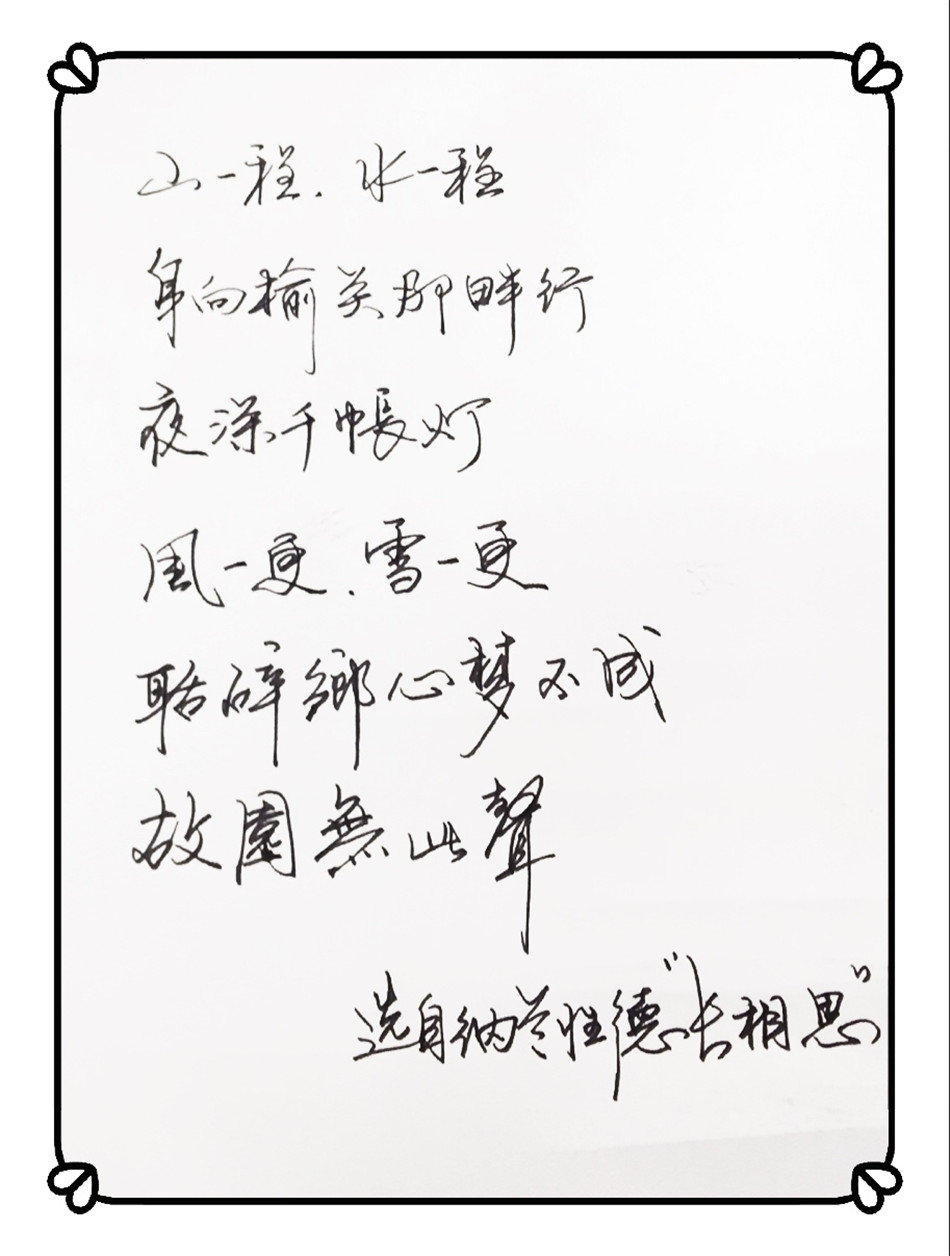 山一程.水一程
身向榆关那畔行
夜深千帳灯
風一更.雪一更
聒碎鄉心梦不成
故園無此聲
选自纳兰性德“长相思”